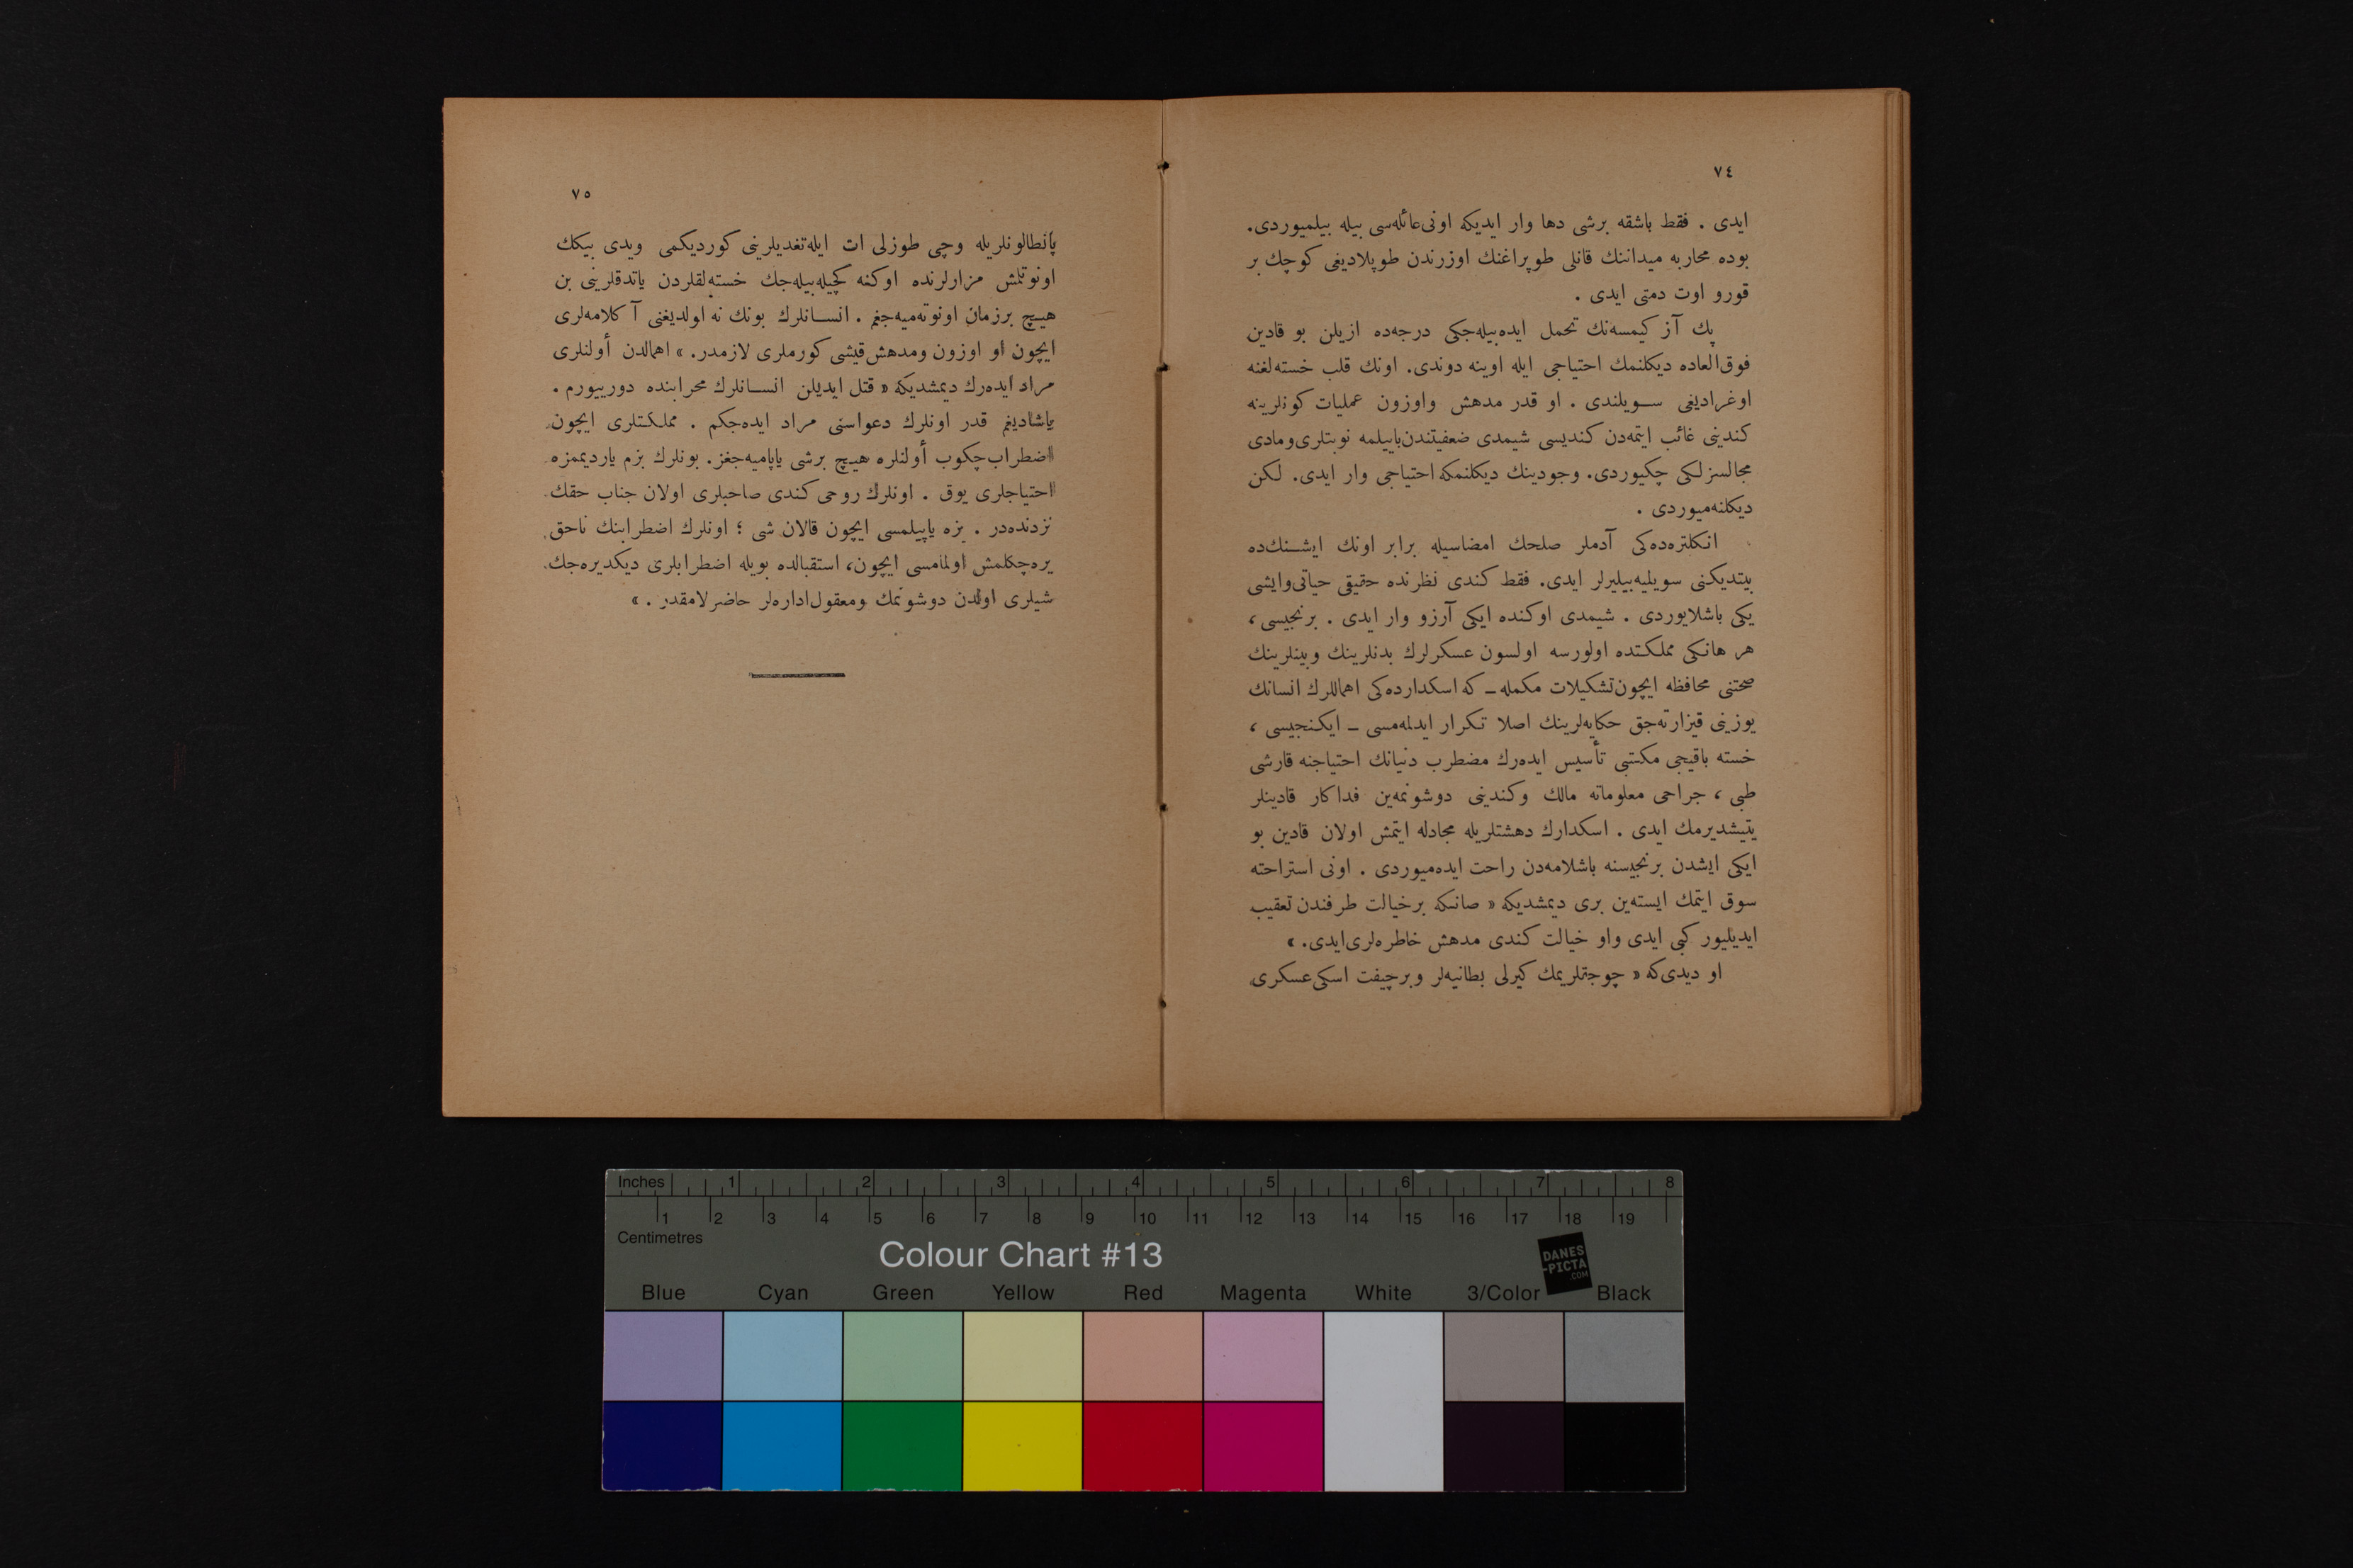 ٧٤
ايدى . فقط باشقه برشى دها وار ايديكه اونى عائله‌سى بيله بيلميوردى.
بوده محاربه ميداننك قانلى طوپراغنك اوزرندن طوپلاديغى كوچك بر
قورو اوت دمتى ايدى .
پك آز كيمسه‌نك تحمل ايده‌بيله‌جكى درجه‌ده ازيلن بو قادين
فوق‌العاده ديكلنمك احتياجى ايله اوينه دوندى. اونك قلب خسته‌لغنه
اوغراديغى سويلندى . او قدر مدهش واوزون عمليات كونلرينه
كندينى غائب ايتمه‌دن كنديسى شيمدى ضعفيتندن باييلمه نوبتلرى ومادى
مجالسزلكى چكيوردى. وجودينك ديكلنمكه احتياجى وار ايدى. لكن
ديكلنه‌ميوردى .
انكلتره‌ده‌كى آدملر صلحك امضاسيله برابر اونك ايشنك‌ده
بيتديكنى سويليه‌بيليرلر ايدى. فقط كندى نظرنده حقيقى حياتى وايشى
يكى باشلايوردى . شيمدى اوكنده ايكى آرزو وار ايدى . برنجيسى ،
هر هانكى مملكتده اولورسه اولسون عسكرلرك بدنلرينك وبينلرينك
صحتنى محافظه ايچون تشكيلات مكمله ـ كه اسكدارده‌كى اهماللرك انسانك
يوزينى قيزارته‌جق حكايه‌لرينك اصلا تكرار ايدلمه‌مسى ـ ايكنجيسى ،
خسته باقيجى مكتبى تأسيس ايده‌رك مضطرب دنيانك احتياجنه قارشى
طبى ، جراحى معلوماته مالك وكندينى دوشونمه‌ين فداكار قادينلر
يتيشديرمك ايدى . اسكدارك دهشتلريله مجادله ايتمش اولان قادين بو
ايكى ايشدن برنجيسنه باشلامه‌دن راحت ايده‌ميوردى . اونى استراحته
سوق ايتمك ايسته‌ين برى ديمشديكه « صانكه برخيالت طرفندن تعقيب
ايديليور كبى ايدى واو خيالت كندى مدهش خاطره‌لرى ايدى. »
او ديدى‌كه « چوجقلريمك كيرلى بطانيه‌لر وبرچيفت اسكى عسكرى
٧٥
پانطالونلريله وچى طوزلى ات ايله تغديلرينى كورديكمى ويدى بيكك
اونوتلمش مزارلرنده اوكنه كچيله‌بيله‌جك خسته‌لقلردن ياتدقلرينى بن
هيچ برزمان اونوته‌ميه‌جغم . انسانلرك بونك نه اولديغنى آكلامه‌لرى
ايچون او اوزون ومدهش قيشى كورملرى لازمدر. » اهمالدن أولنلرى
مراد ايده‌رك ديمشديكه « قتل ايديلن انسانلرك محرابنده دورييورم .
ياشاديغم قدر اونلرك دعواسنى مراد ايده‌جكم . مملكتلرى ايچون
اضطراب چكوب أولنلره هيچ برشى ياپاميه‌جغز. بونلرك بزم يارديممزه
احتياجلرى يوق . اونلرك روحى كندى صاحبلرى اولان جناب حقك
نزدنده‌در . بزه ياپيلمسى ايچون قالان شى ؛ اونلرك اضطرابنك ناحق
يره چكلمش اولمامسى ايچون، استقبالده بويله اضطرابلرى ديكديره‌جك
شيلرى اولدن دوشونمك ومعقول اداره‌لر حاضرلامقدر . »
Inches 1 2 3 4 5 6 7 8
1 2 3 4 5 6 7 8 9 10 11 12 13 14 15 16 17 18 19
Centimetres
Colour Chart #13
DANES
-PICTA
.COM
Blue Cyan Green Yellow Red Magenta White 3/Color Black